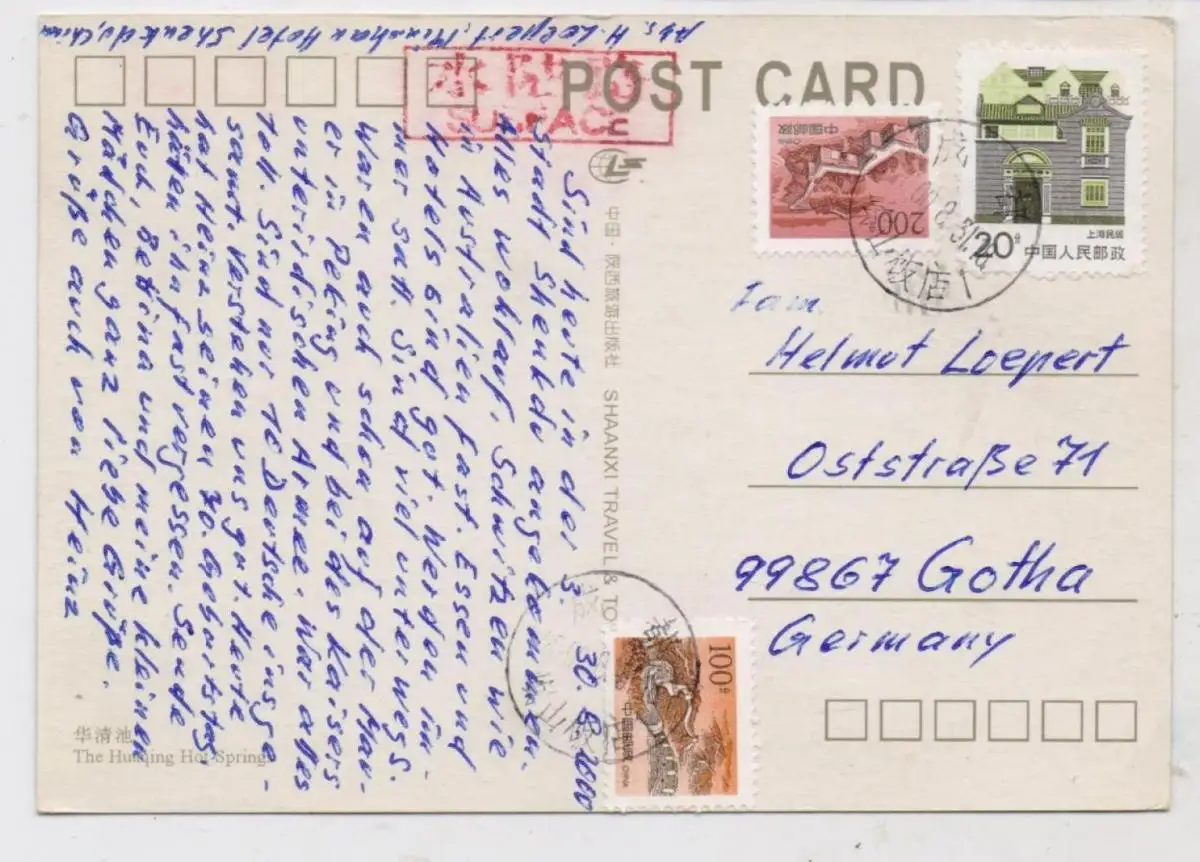 Abs. H. Loepert, Minshan Hotel Shenkdu, China
POST CARD
SURFACE
30.8.2000
Sind heute in der 3.
Stadt Shenkdu angekommen.
Alles wohlauf. Schwitzen wie
in Australien fast. Essen und
Hotels sind gut. Werden im-
mer satt. Sind viel unterwegs.
Waren auch schon auf der Mau-
er in Peking und bei des Kaisers
unterirdischen Armee. War alles
toll. Sind nur 10 Deutsche insge-
samt. Verstehen uns gut. Heute
hat Heinz seinen 70. Geburtstag,
hätten ihn fast vergessen. Sende
Euch, Betina und meine kleinen
Mädchen ganz liebe Grüße.
Grüße auch von Heinz
华清池
The Huaqing Hot Springs
中国·陕西旅游出版社 SHAANXI TRAVEL & TO
中国邮政 CHINA
200分
上海民居
20分
中国人民邮政
Fam.
Helmut Loepert
Oststraße 71
99867 Gotha
Germany
100分
中国邮政 CHINA